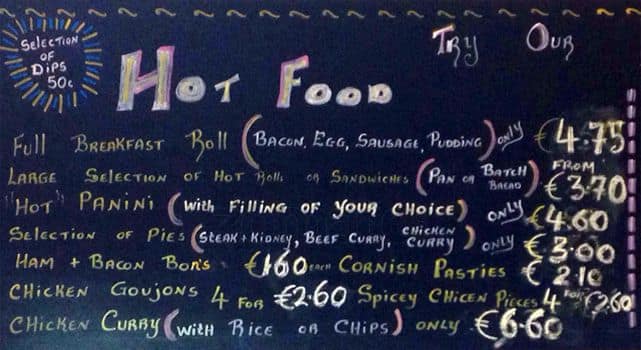 Selection
of
Dips
50c
Try Our
Hot Food
Full Breakfast Roll (Bacon, Egg, Sausage, Pudding) only €4.75
Large Selection of Hot Rolls or Sandwiches (Pan or Batch Bread) From €3.70
"Hot" Panini (with Filling of your choice) only €4.60
Selection of Pies (Steak + Kidney, Beef Curry, Chicken Curry) only €3.00
Ham + Bacon Bon's €1.60 each Cornish Pasties €2.10
Chicken Goujons 4 for €2.60 Spicey Chicen Pieces 4 for €2.60
Chicken Curry (with Rice or Chips) only €6.60